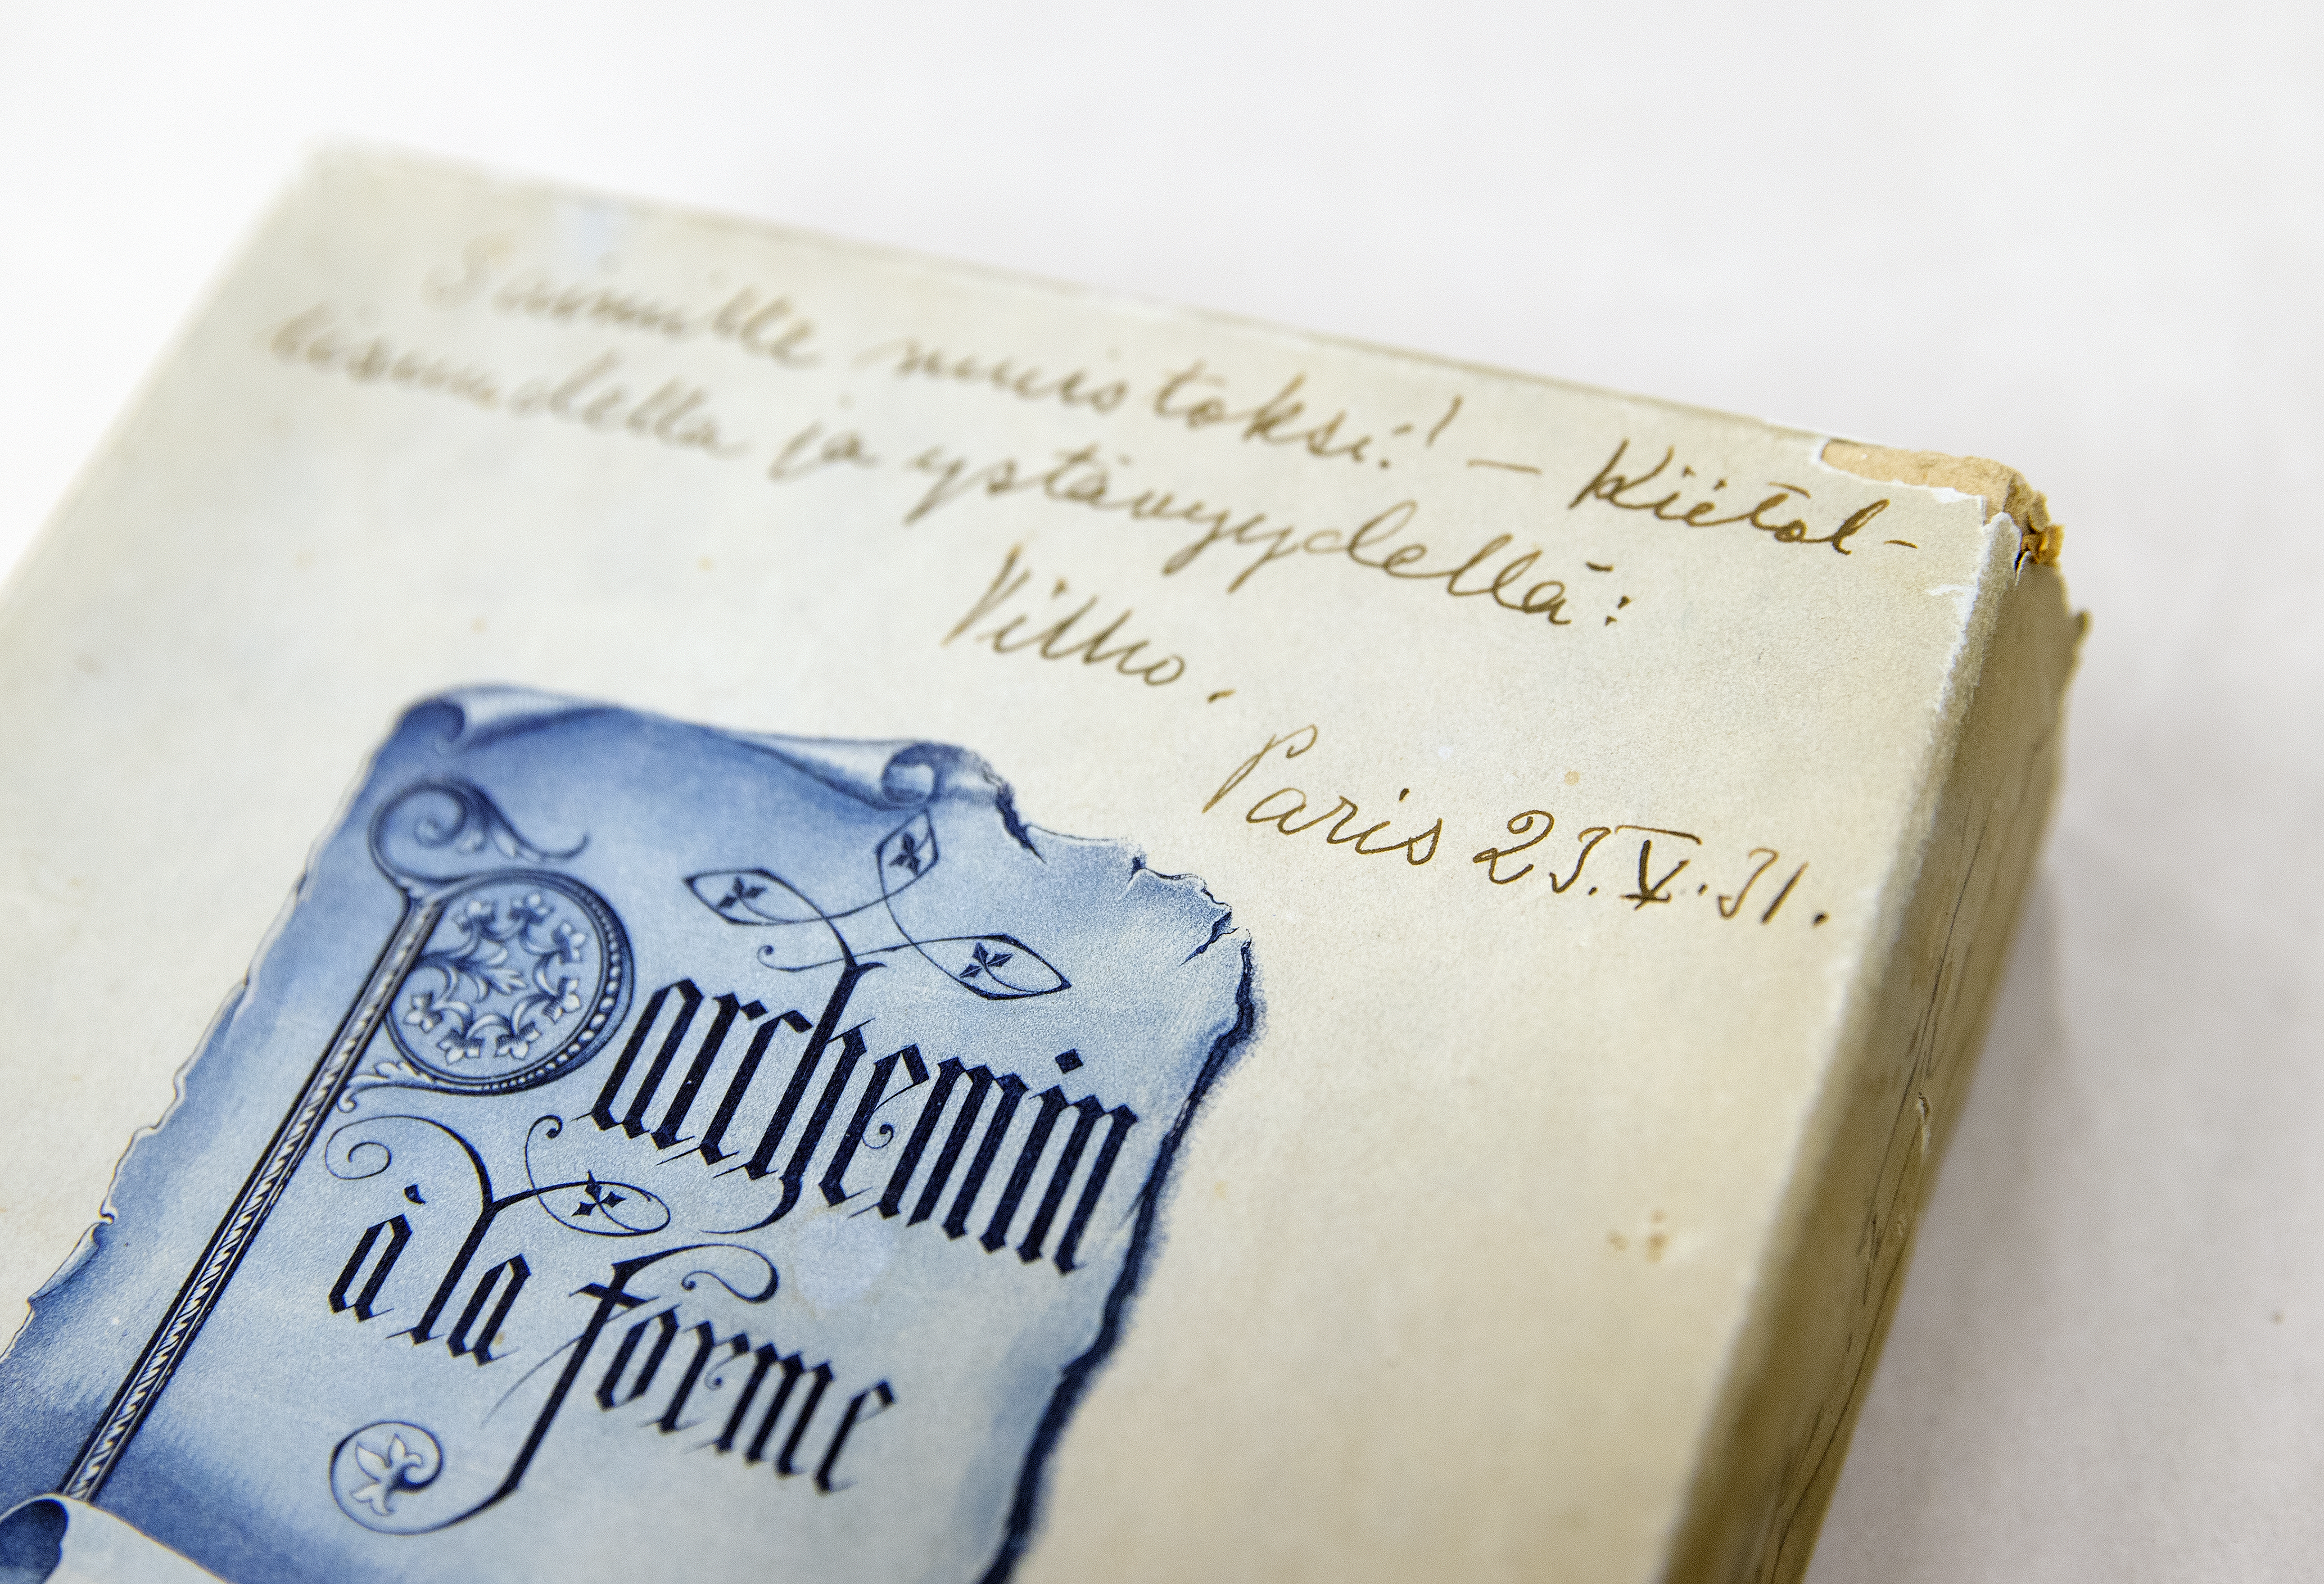 Saimille muistoksi! — Kiitol-
lisuudella ja ystävyydellä:
Vilho.
Paris 23.V.31.
Parchemin
à la forme